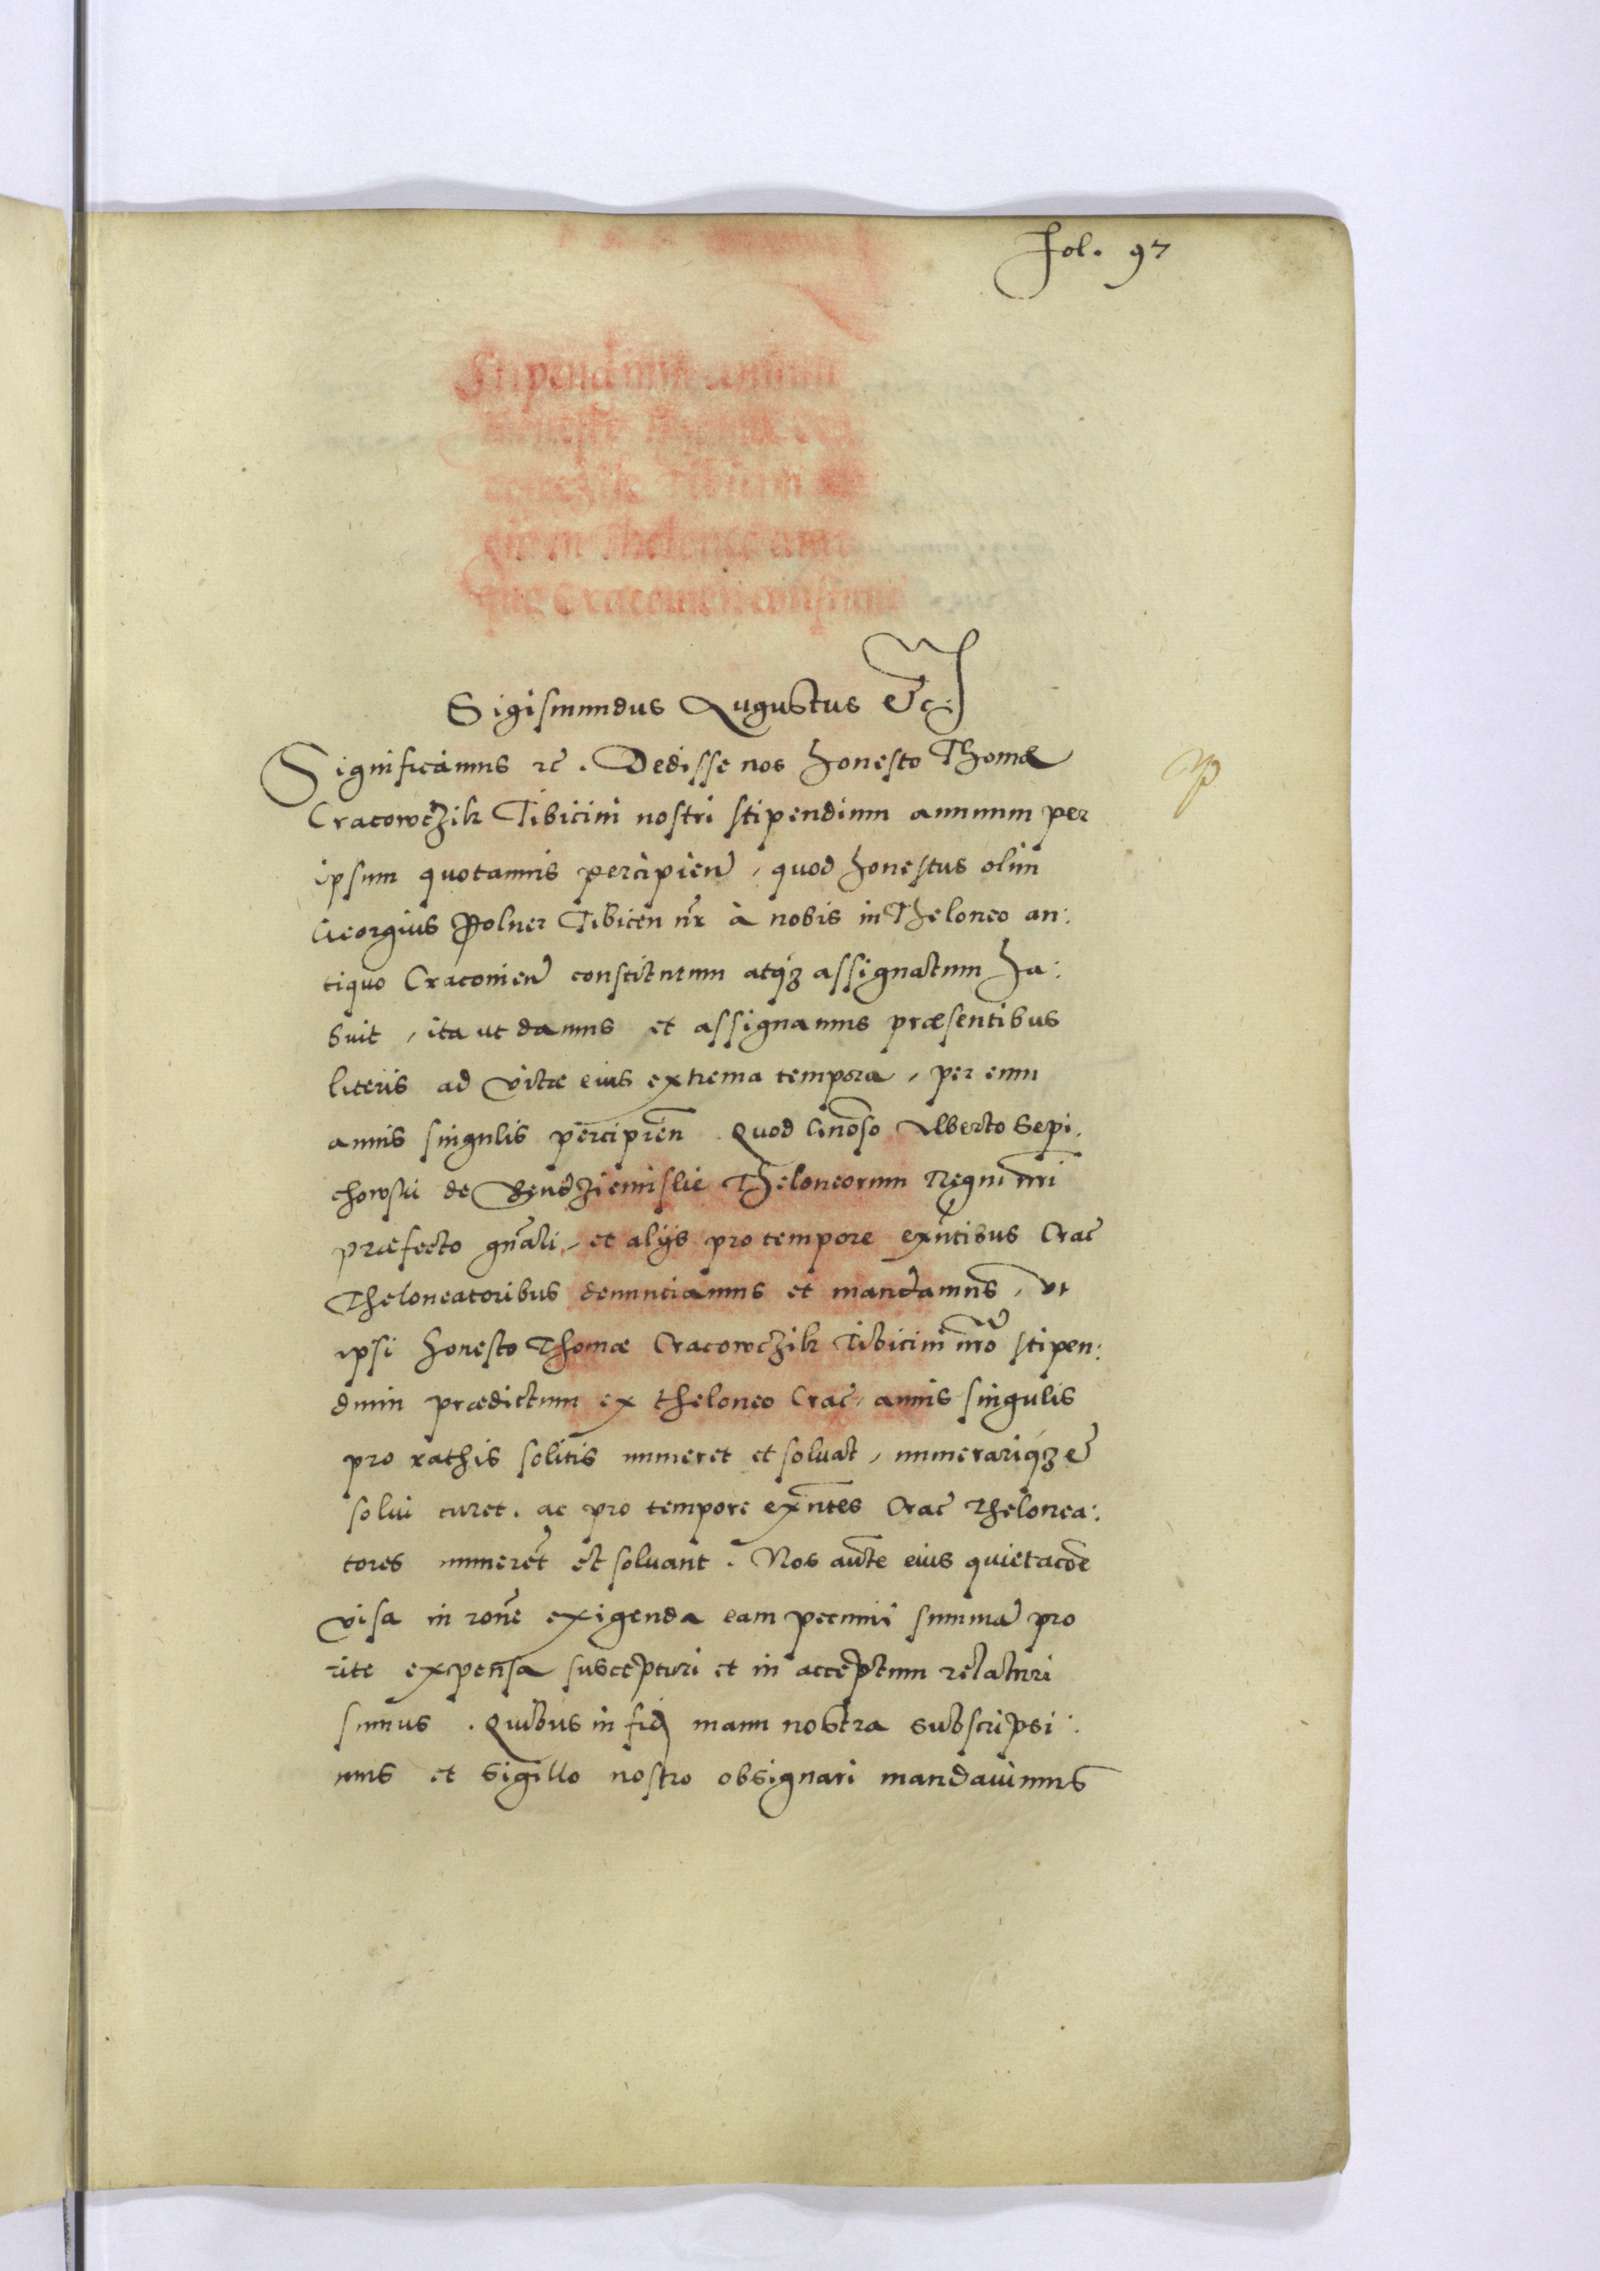 Fol. 97
Stipendium annuum
honesto Thomae Cra
cowczik Tibicini
in Theloneo anti
quo Cracoviensi
Sigismundus Augustus Etc:
Significamus etc. Dedisse nos honesto Thomæ
Cracowczik Tibicini nostri stipendium annuum per
ipsum quotannis percipien̄, quod honestus olim
Georgius Polner Tibicen nr̄ à nobis in Theloneo an:
tiquo Cracovien̄ constitutum atq3 assignatum ha:
buit, ita ut damus et assignamus præsentibus
literis ad vitæ eius extrema tempora, per eum
annis singulis percipien̄. Quod Gn̄oso Alberto Sepi:
chowski de Bendziemislic Theloneorum Regni nr̄i
præfecto gn̄ali, et alijs pro tempore exn̄tibus Crac̄
Theloneatoribus denunciamus et mandamus, ut
ipsi honesto Thomæ Cracowczik Tibicini nr̄o stipen:
dium prædictum ex theloneo Crac̄, annis singulis
pro rathis solitis numeret et soluat, numerariq3 et
solui curet. ac pro tempore exn̄tes Crac̄ Thelonea:
tores numerēt et soluant. Nos aut̄e eius quietac̄oe
visa in ron̄e exigenda eam pecunii summā pro
rite expensa suscepturi et in acceptum relaturi
sumus. Quibus in fid̄ manu nostra subscripsi:
mus et sigillo nostro obsignari mandauimus